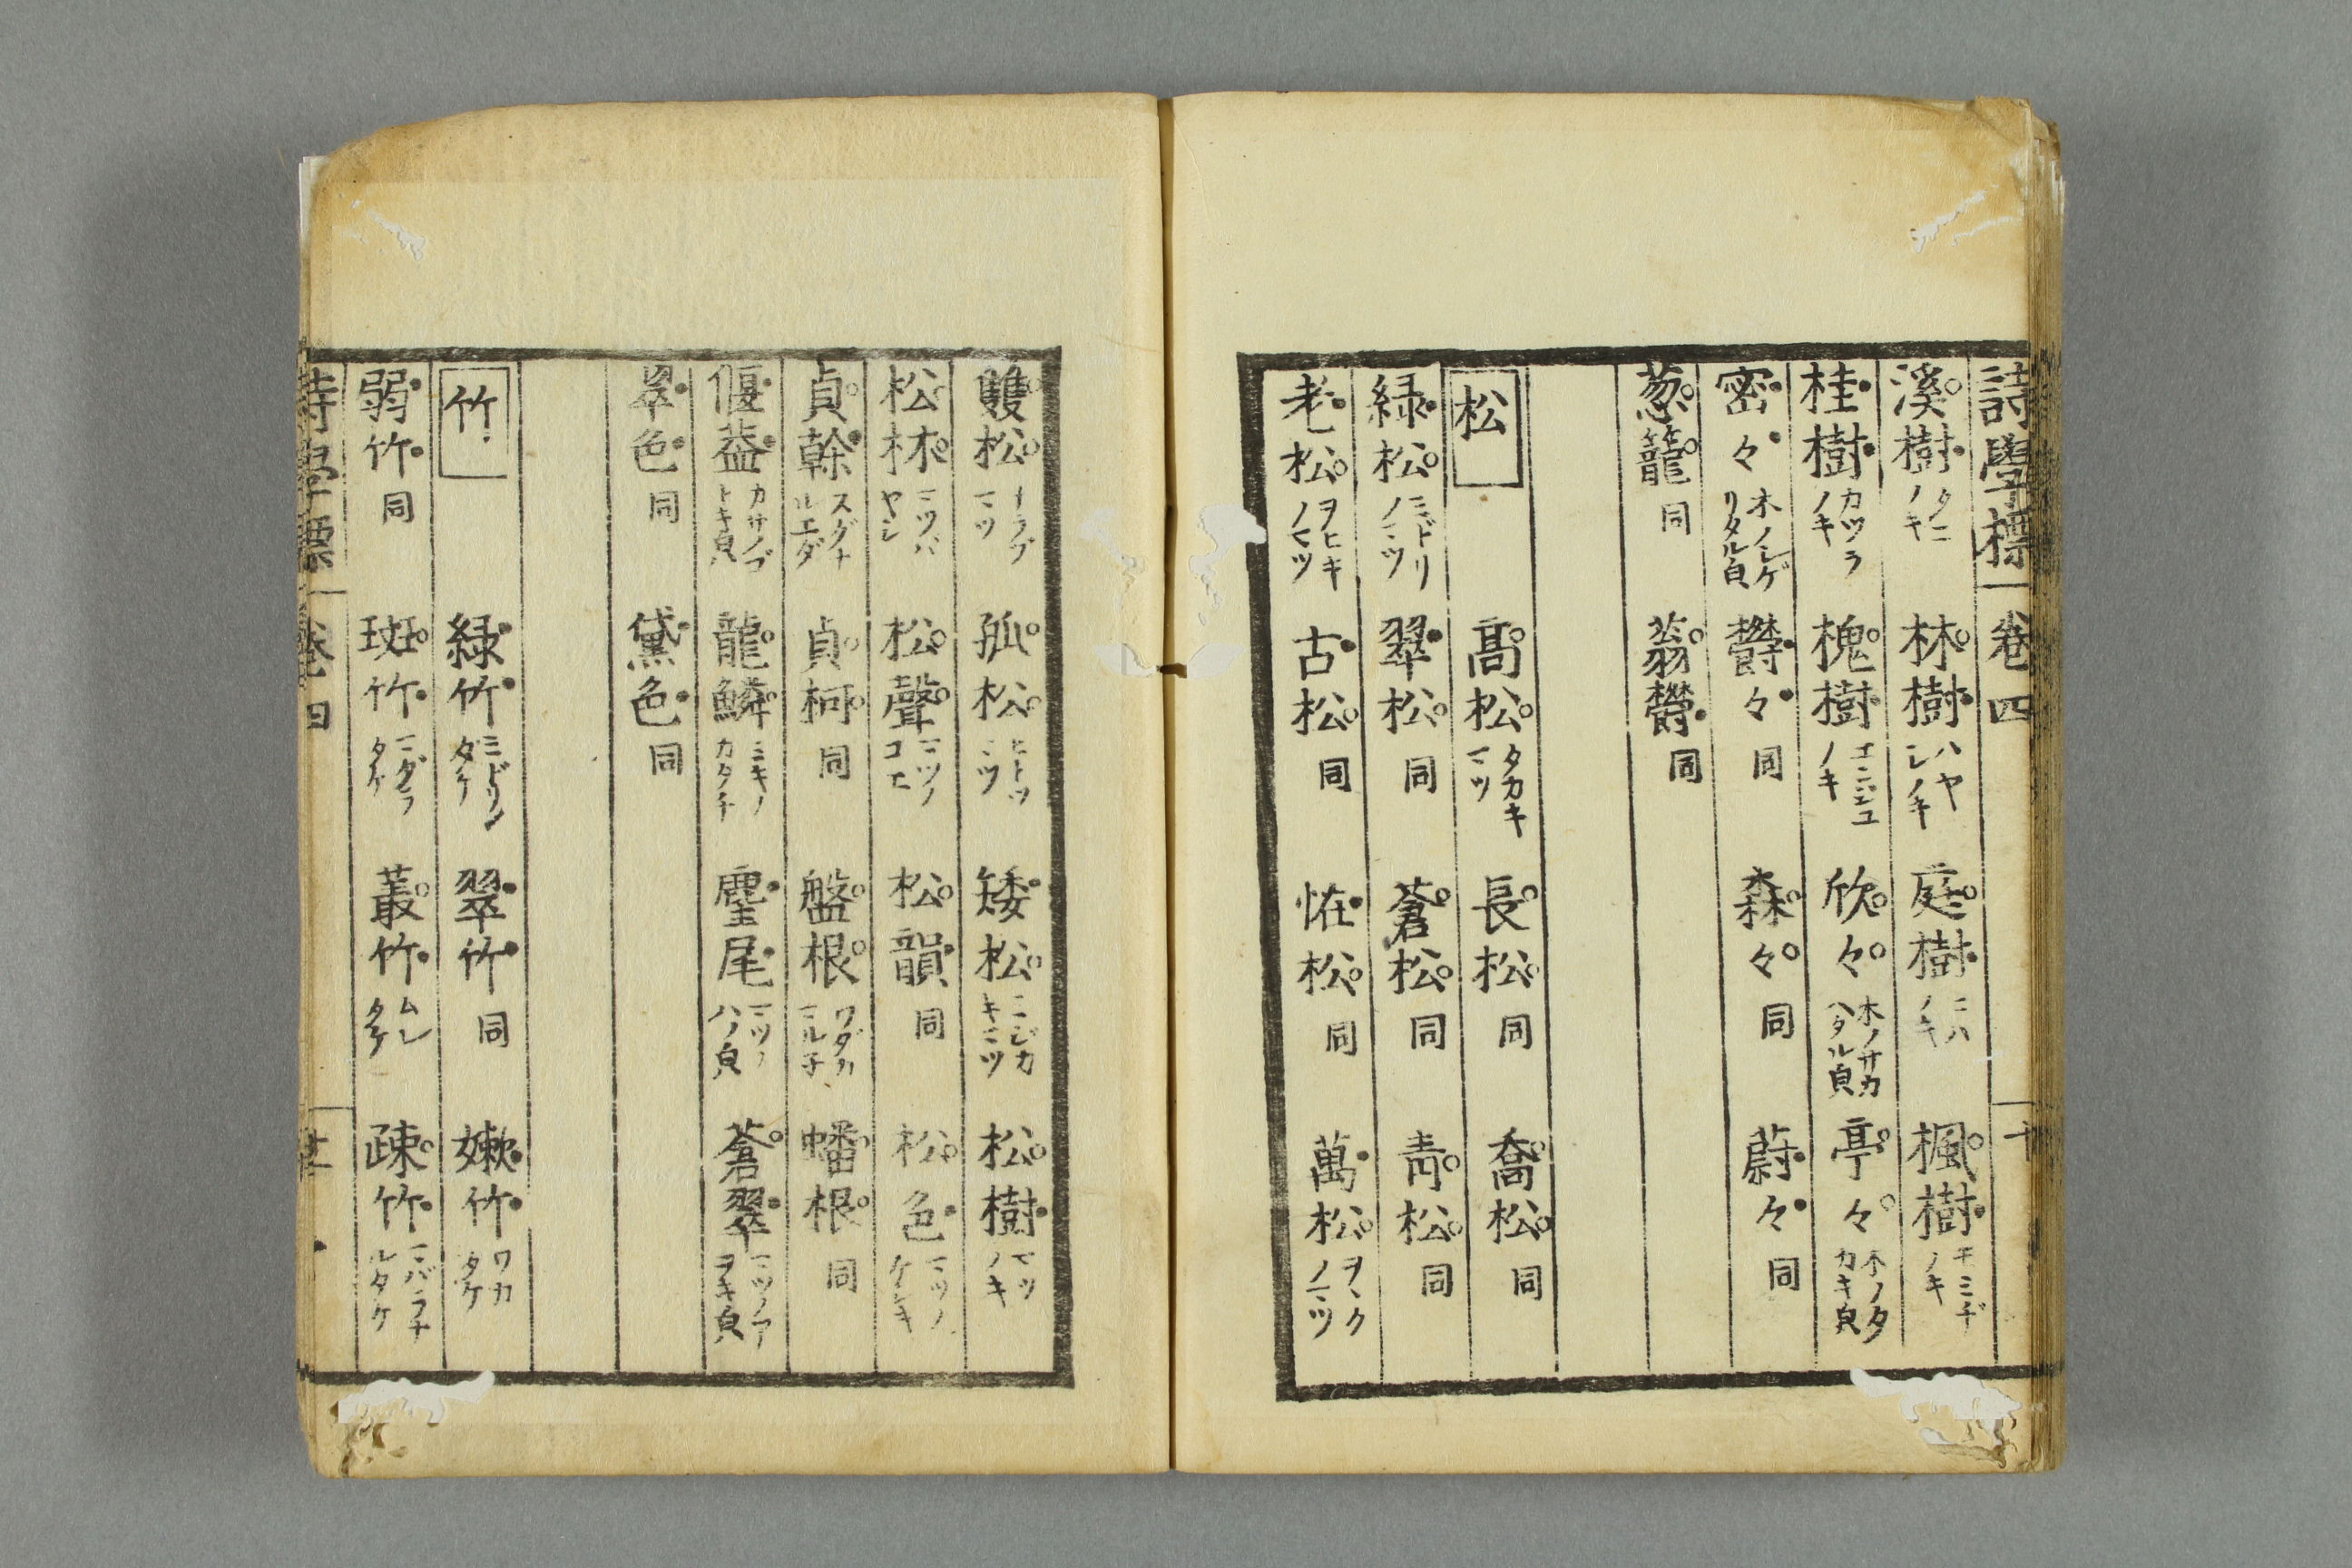 詩學標 卷四 十
溪樹 タニノキ 林樹 ハヤシノキ 庭樹 ニハノキ 楓樹 モミヂノキ
桂樹 カツラノキ 槐樹 エンジユノキ 欣々 木ノサカハタル皃 亭々 木ノタカキ皃
密々 木ノシゲリタル皃 欝々 同 森々 同 蔚々 同
葱籠 同 蓊欝 同
松 髙松 タカキマツ 長松 同 喬松 同
緑松 ミドリノマツ 翠松 同 蒼松 同 青松 同
老松 ヲヒキノマツ 古松 同 恠松 同 萬松 ヲヽクノマツ
雙松 ナラブマツ 孤松 ヒトツマツ 矮松 ミジカキマツ 松樹 マツノキ
松林 マツバヤシ 松聲 マツノコエ 松韻 同 松色 マツノケシキ
貞榦 スグナルエダ 貞柯 同 盤根 ワダカマル子 蟠根 同
偃葢 カサノゴトキ皃 龍鱗 ミキノカタチ 麈尾 マツノハノ皃 蒼翠 マツノアヲキ皃
翠色 同 黛色 同
竹 緑竹 ミドリノダケ 翠竹 同 嫩竹 ワカタケ
弱竹 同 斑竹 マダラタケ 叢竹 ムレタケ 疎竹 マバラナルタケ
詩學標 卷四